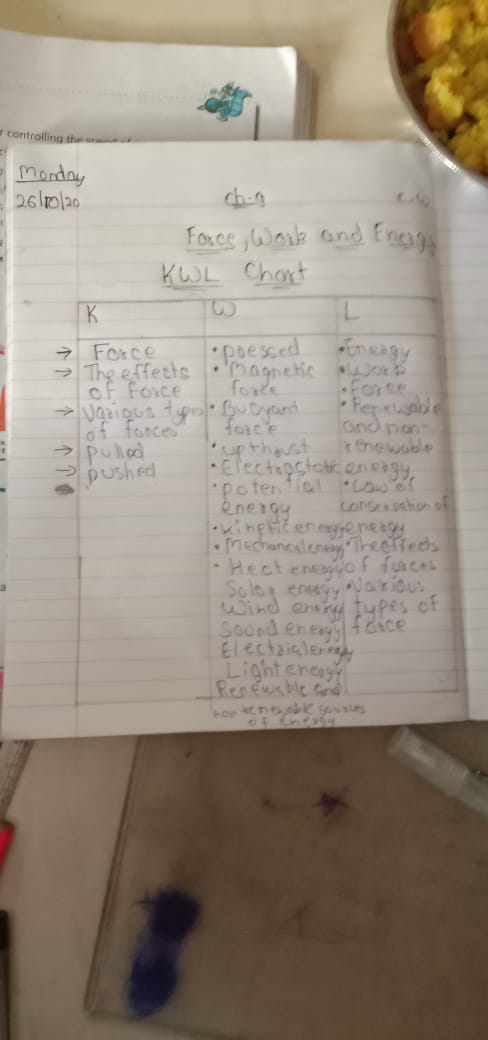 controlling the speed of
Monday
26/10/20
Ch-9
C.W
Force, Work and Energy
KWL Chart
K
W
L
→ Force
→ The effects
of force
→ Various types
of forces
→ pulled
→ pushed
• pressed
• Magnetic
force
• Buoyant
force
• upthrust
• Electrostatic
• potential
energy
• Kinetic energy
• Mechanical energy
• Heat energy
Solar energy
Wind energy
Sound energy
Electrial energy
Light energy
Renewable and
non renewable sources
of energy
• Energy
• Work
• Force
• Renewable
and non-
renewable
energy
• Law of
conservation of
energy
• The effects
of forces
• Various
types of
force